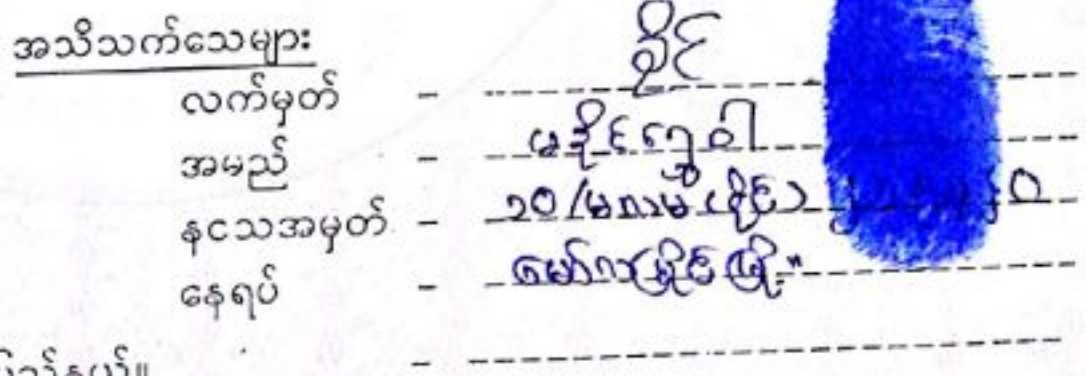 အသိသက်သေများ
လက်မှတ် - ခိုင်
အမည် - မခိုင်ရွှေဝါ
နငသအမှတ် - ၁၀/မလမ (နိုင်)
နေရပ် - မော်လမြိုင်မြို့။
-